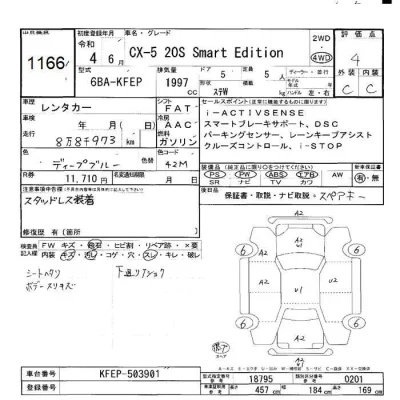 出品番号
1166
初度登録年月
令和
4 6 月
車名・グレード
CX-5 20S Smart Edition
2WD
4WD
評価点
4
型式
6BA-KFEP
排気量
1997 cc
ドア
5
形状
ステW
定員
5 人
積載
kg
ディーラー・並行
モデル年式
ハンドル 左・右
外装 内装
C C
車歴
レンタカー
車検
年 月( 日)
走行
8万8千973 km
色
ディープブルー
色替
シフト
FAT
冷房
AAC
燃料
ガソリン
色コード
42M
セールスポイント(正常に機能するものに限ります)
i-ACTIVSENSE
スマートブレーキサポート、DSC
パーキングセンサー、レーンキープアシスト
クルーズコントロール、i-STOP
R券
11,710円
名変期限
月 日
装備品(純正品に限り○をつけてください)
PS PW ABS エアB
SR ナビ TV カワ
AW
新車保証書
有・無
注意事項申告欄
スタッドレス装着
後日品
保証書・取説・ナビ取説・スペアキー
修復歴 有(箇所 )
検査員記入欄
FW キズ・飛石・ヒビ割・リペア跡・×要
内装 キズ・汚レ・コゲ・穴・スレ・キレ・破レ
シートヘタリ
下廻リサビ
A2
A2
A2
U1
U2
A2
U1
6
6
6
6
スペア
車台番号
KFEP-503901
登録番号
型式指定番号
18795
類別区分番号
0201
長さ
457 cm
幅
184 cm
高さ
169 cm